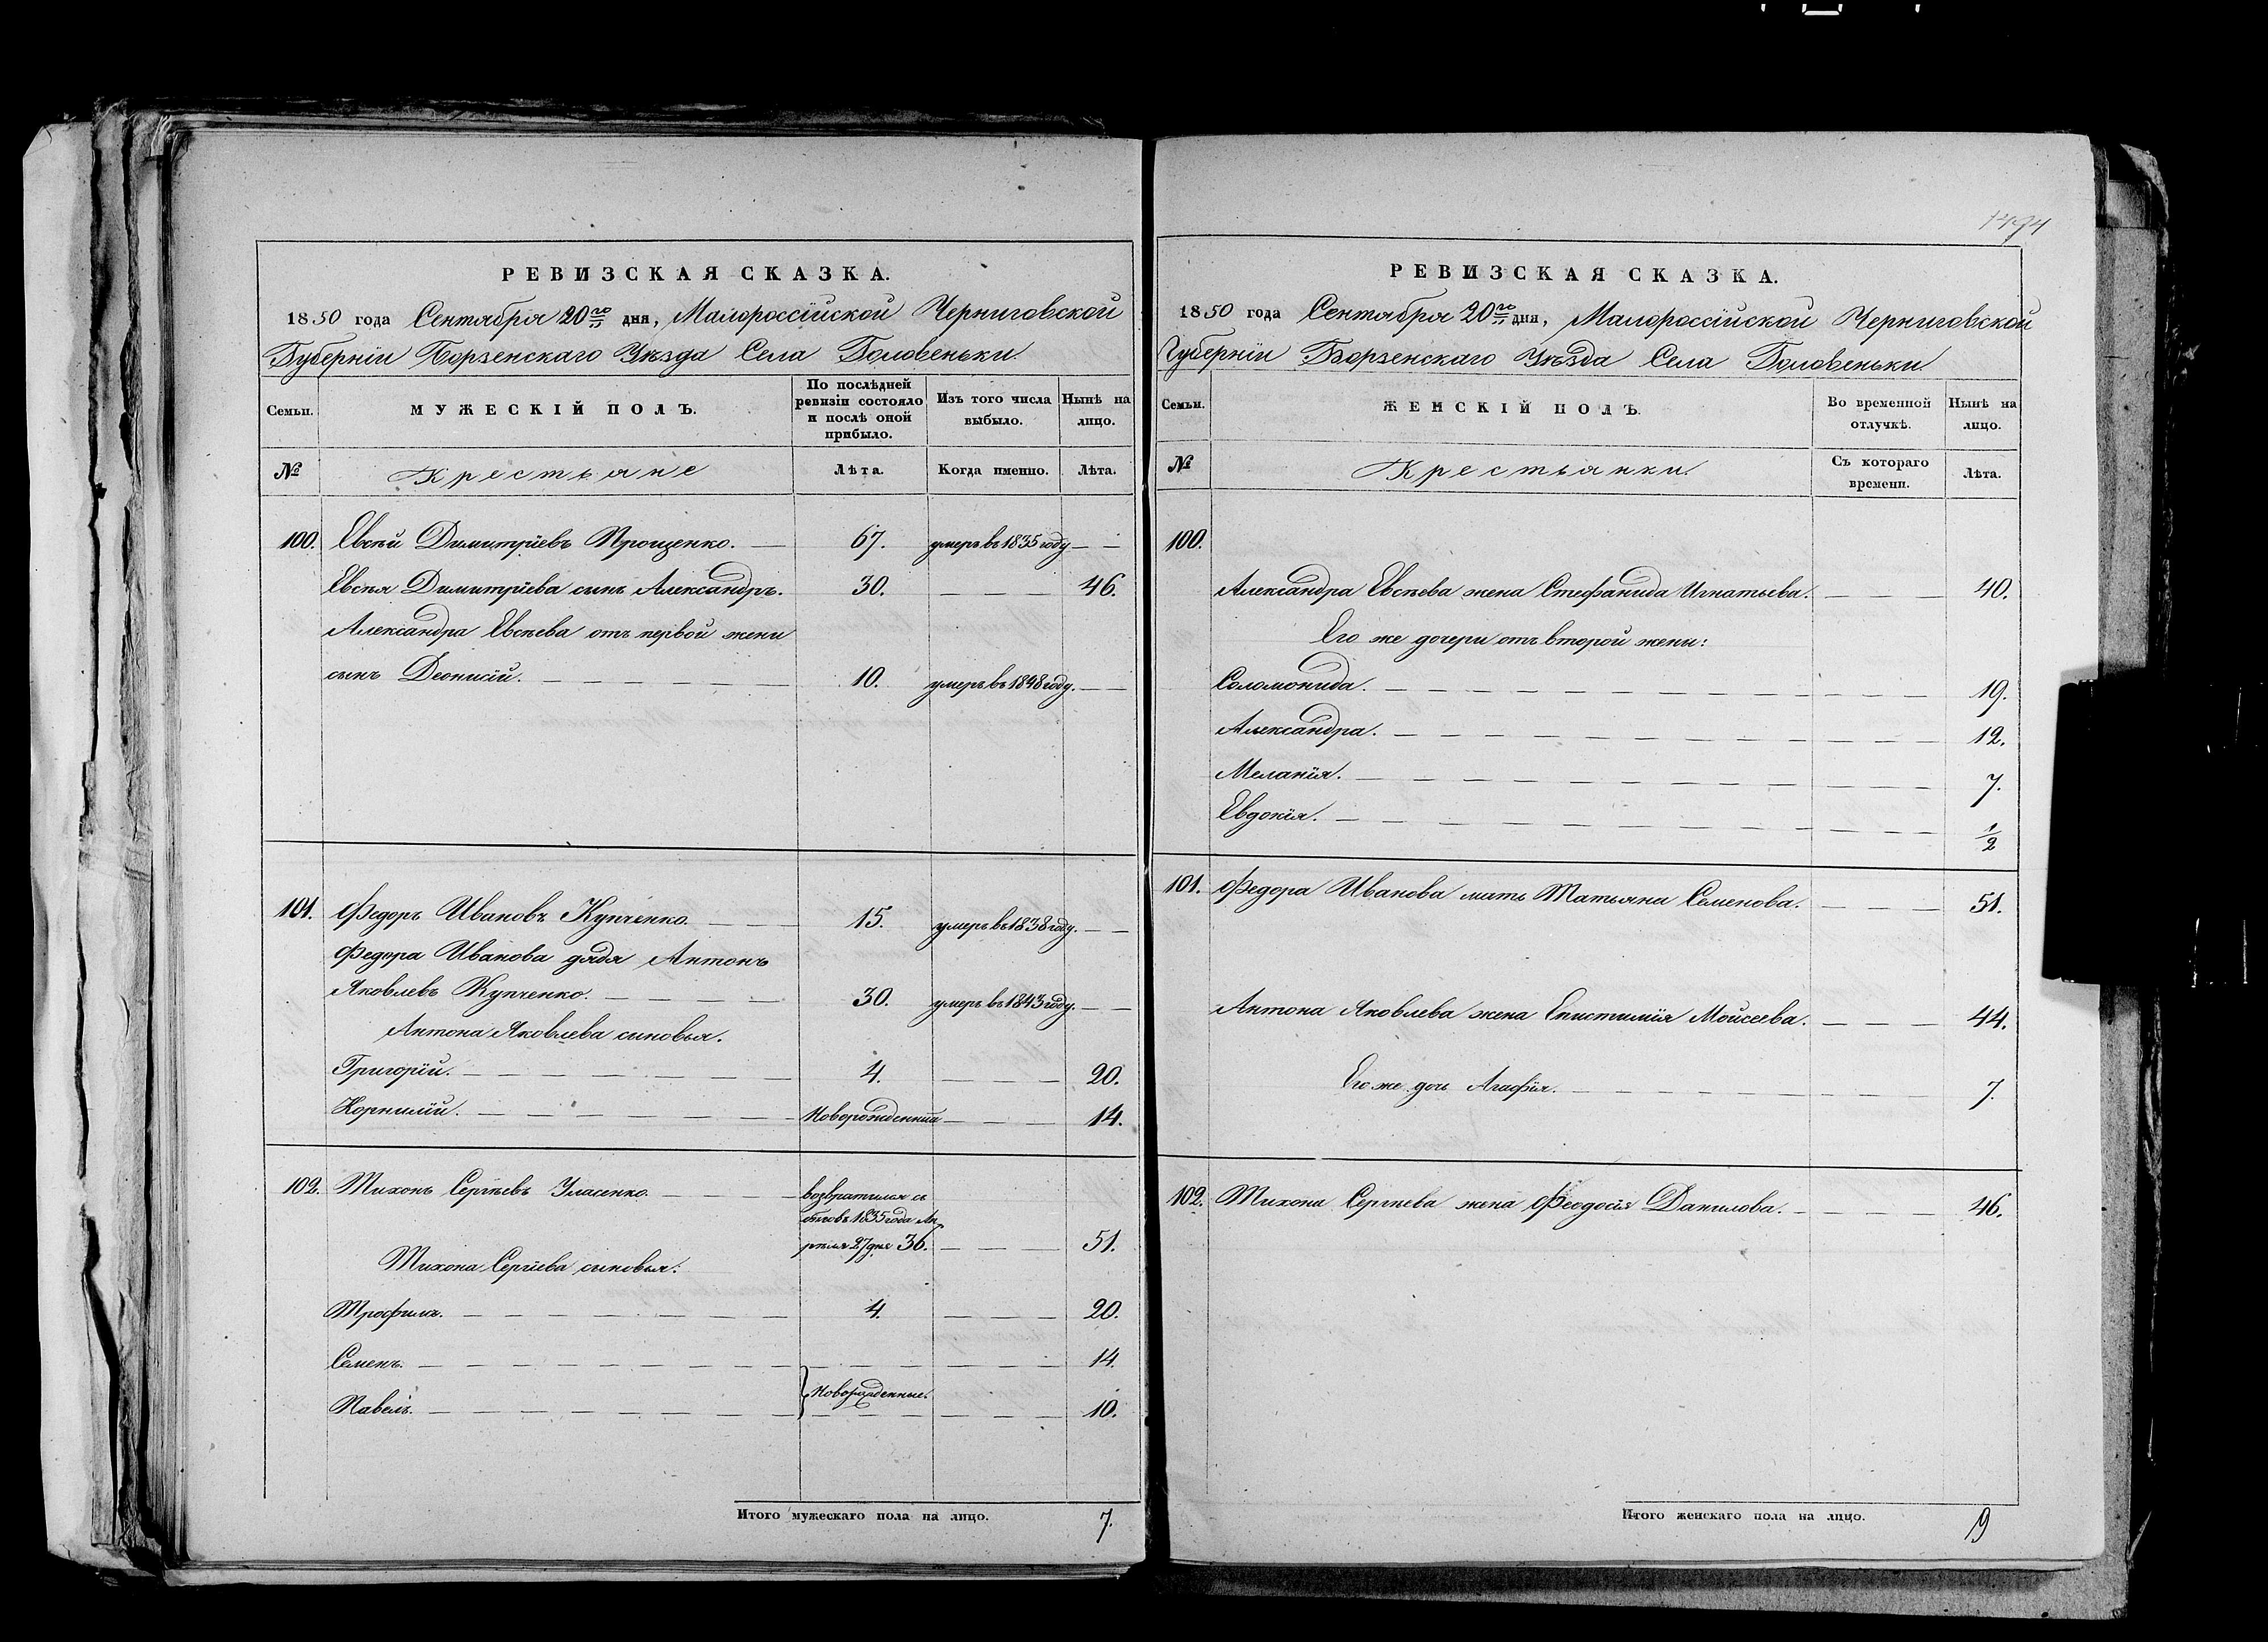 РЕВИЗСКАЯ СКАЗКА.
1850 года Сентября 20го дня, Малороссійской Черниговской
Губерніи Борзенскаго Уѣзда Села Головеньки
Семьи.
МУЖЕСКІЙ ПОЛЪ.
По послѣдней
ревизіи состояло
и послѣ оной
прибыло.
Изъ того числа
выбыло.
Нынѣ на
лицо.
№
Крестьяне
Лѣта.
Когда именно.
Лѣта.
100. Евсѣй Димитріевъ Прощенко. 67. умеръ въ 1835 году — —
Евсѣя Димитріева сынъ Александръ. 30. — — — 46.
Александра Евсѣева отъ первой жены
сынъ Деонисій. 10. умеръ въ 1848 году. — —
101. Федоръ Ивановъ Купченко. 15. умеръ въ 1838 году. — —
Федора Иванова дядя Антонъ
Яковлевъ Купченко. 30. умеръ въ 1843 году. — —
Антона Яковлева сыновья.
Григорій. 4. — — — 20.
Корнилій. Новорожденный — — — 14.
102. Тихонъ Сергѣевъ Уласенко.
возвратился съ
бѣговъ 1835 года Ап
рѣля 27 дня 36. — — — 51.
Тихона Сергіева сыновья:
Трофимъ. 4. — — — 20.
Семенъ. 14.
Новорожденные.
Павелъ. 10.
Итого мужескаго пола на лицо. 7.
1494
РЕВИЗСКАЯ СКАЗКА.
1850 года Сентября 20го дня, Малороссійской Черниговской
Губерніи Борзенскаго Уѣзда Села Головеньки
Семьи.
ЖЕНСКІЙ ПОЛЪ.
Во временной
отлучкѣ.
Нынѣ на
лицо.
№
Крестьянки.
Съ котораго
времени.
Лѣта.
100.
Александра Евсѣева жена Стефанида Игнатьева. — — — 40.
Его же дочери отъ второй жены:
Соломонида. 19.
Александра. 12.
Меланія. 7.
Евдокія. 1/2
101. Федора Иванова мать Татьяна Семенова. — — — 51.
Антона Яковлева жена Епистимія Мойсеева. — — — 44.
Его же дочь Агафія. 7.
102. Тихона Сергѣева жена Феодосія Данилова. — — — 46.
Итого женскаго пола на лицо. 9